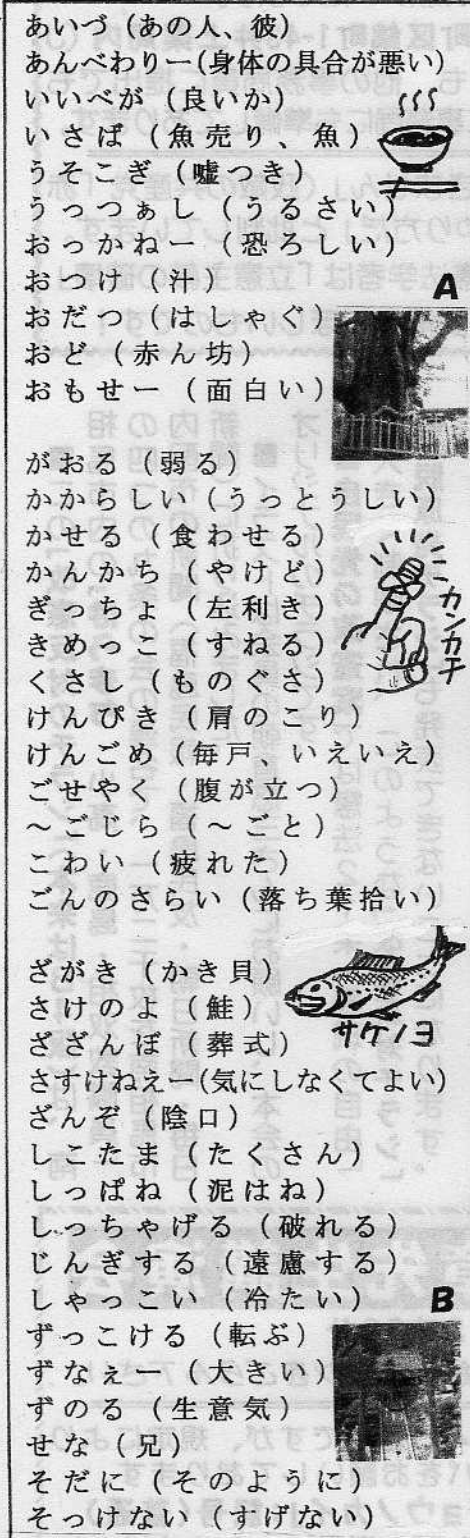 あいづ（あの人、彼）
あんべわりー(身体の具合が悪い)
いいべが（良いか）
いさば（魚売り、魚）
うそこぎ（嘘つき）
うっつぁし（うるさい）
おっかねー（恐ろしい）
おつけ（汁）
A
おだつ（はしゃぐ）
おど（赤ん坊）
おもせー（面白い）
がおる（弱る）
かからしい（うっとうしい）
かせる（食わせる）
かんかち（やけど）
カンカチ
ぎっちょ（左利き）
きめっこ（すねる）
くさし（ものぐさ）
けんぴき（肩のこり）
けんごめ（毎戸、いえいえ）
ごせやく（腹が立つ）
～ごじら（～ごと）
こわい（疲れた）
ごんのさらい（落ち葉拾い）
ざがき（かき貝）
さけのよ（鮭）
サケノヨ
ざざんぼ（葬式）
さすけねえー(気にしなくてよい)
ざんぞ（陰口）
しこたま（たくさん）
しっぱね（泥はね）
しっちゃげる（破れる）
じんぎする（遠慮する）
しゃっこい（冷たい）
B
ずっこける（転ぶ）
ずなぇー（大きい）
ずのる（生意気）
せな（兄）
そだに（そのように）
そっけない（すげない）